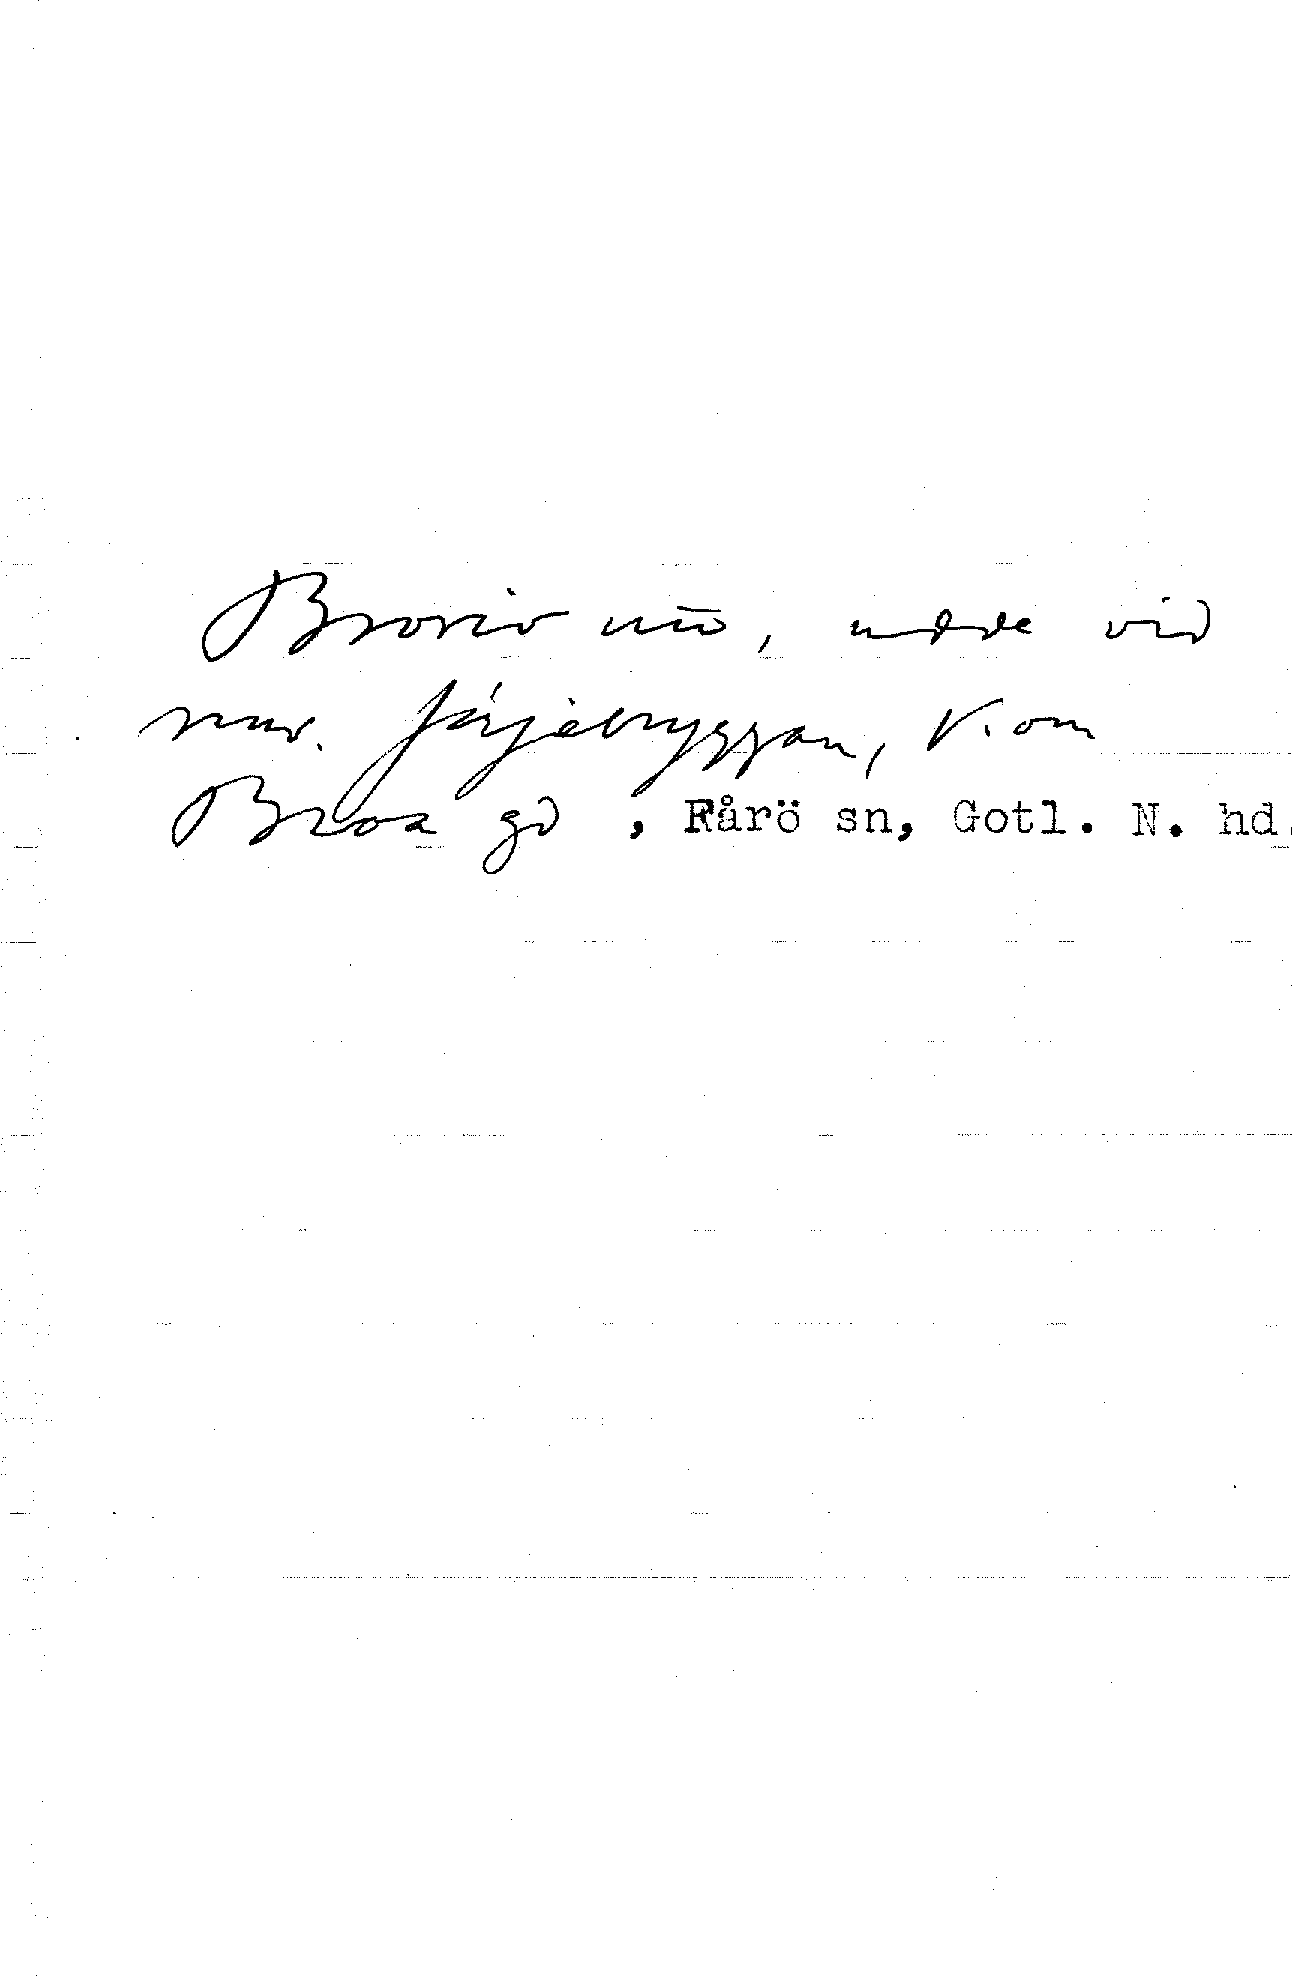 Broriv nu, udde vid
nuv. färjebryggan, V. om
Broa gd , Fårö sn, Gotl. N. hd.